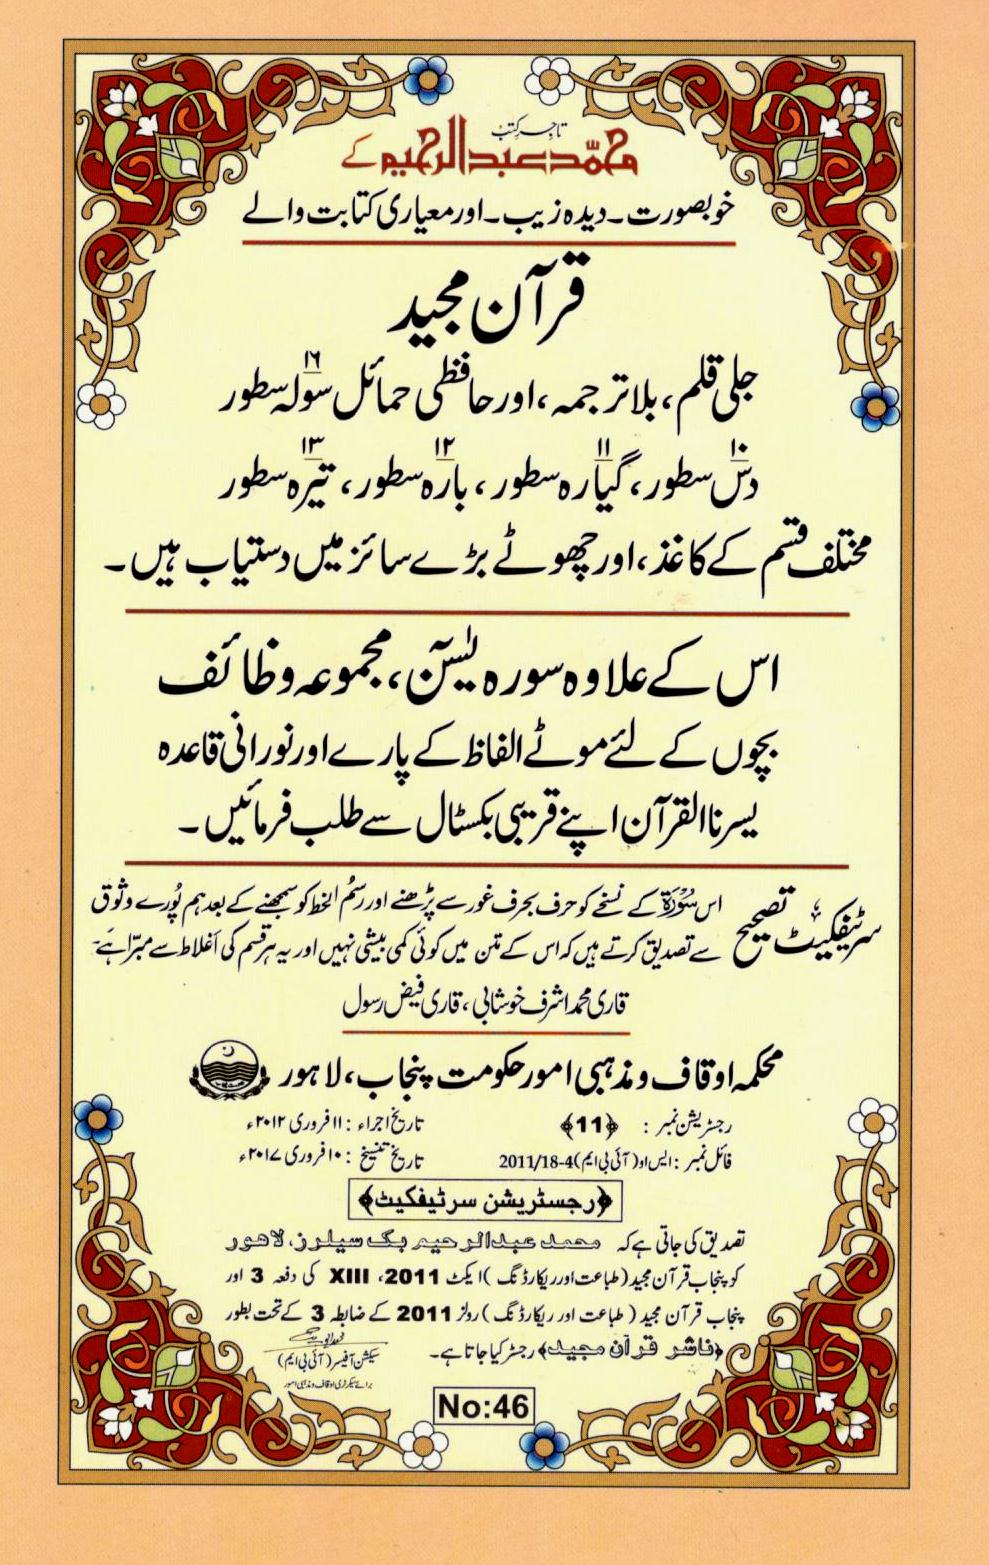 تاجرِ کتب
محمّد عبدالرحیم کے
خوبصورت۔دیدہ زیب۔اور معیاری کتابت والے
قرآن مجید
جلی قلم، بلا ترجمہ، اور حافظی حمائل سولہ ۱۶ سطور
دس ۱۰ سطور، گیارہ ۱۱ سطور، بارہ ۱۲ سطور، تیرہ ۱۳ سطور
مختلف قسم کے کاغذ، اور چھوٹے بڑے سائز میں دستیاب ہیں۔
اس کے علاوہ سورہ یٰسٓن، مجموعہ وظائف
بچوں کے لئے موٹے الفاظ کے پارے اور نورانی قاعدہ
یسرنا القرآن اپنے قریبی بکسٹال سے طلب فرمائیں۔
سرٹیفکیٹ تصحیح
اس سُوْرَۃ کے نسخے کو حرف بحرف غور سے پڑھنے اور رسمُ الخط کو سمجھنے کے بعد ہم پُورے وثوق
سے تصدیق کرتے ہیں کہ اس کے متن میں کوئی کمی بیشی نہیں اور یہ ہر قسم کی اَغلاط سے مبرّا ہَے۔
قاری محمد اشرف خوشابی، قاری فیض رسول
محکمہ اوقاف و مذہبی امور حکومت پنجاب، لاہور
رجسٹریشن نمبر : ﴿11﴾ تاریخ اجراء : ۱۱ فروری ۲۰۱۲ء
فائل نمبر : ایس او (آئی پی ایم)4-2011/18 تاریخ تنسیخ : ۱۰ فروری ۲۰۱۷ء
﴿رجسٹریشن سرٹیفکیٹ﴾
تصدیق کی جاتی ہے کہ محمد عبدالرحیم بک سیلرز، لاہور
کو پنجاب قرآن مجید (طباعت اور ریکارڈنگ) ایکٹ 2011، XIII کی دفعہ 3 اور
پنجاب قرآن مجید (طباعت اور ریکارڈنگ) رولز 2011 کے ضابطہ 3 کے تحت بطور
﴿ناشر قرآن مجید﴾ رجسٹر کیا جاتا ہے۔
سیکشن آفیسر (آئی پی ایم)
برائے سیکرٹری اوقاف و مذہبی امور
No:46